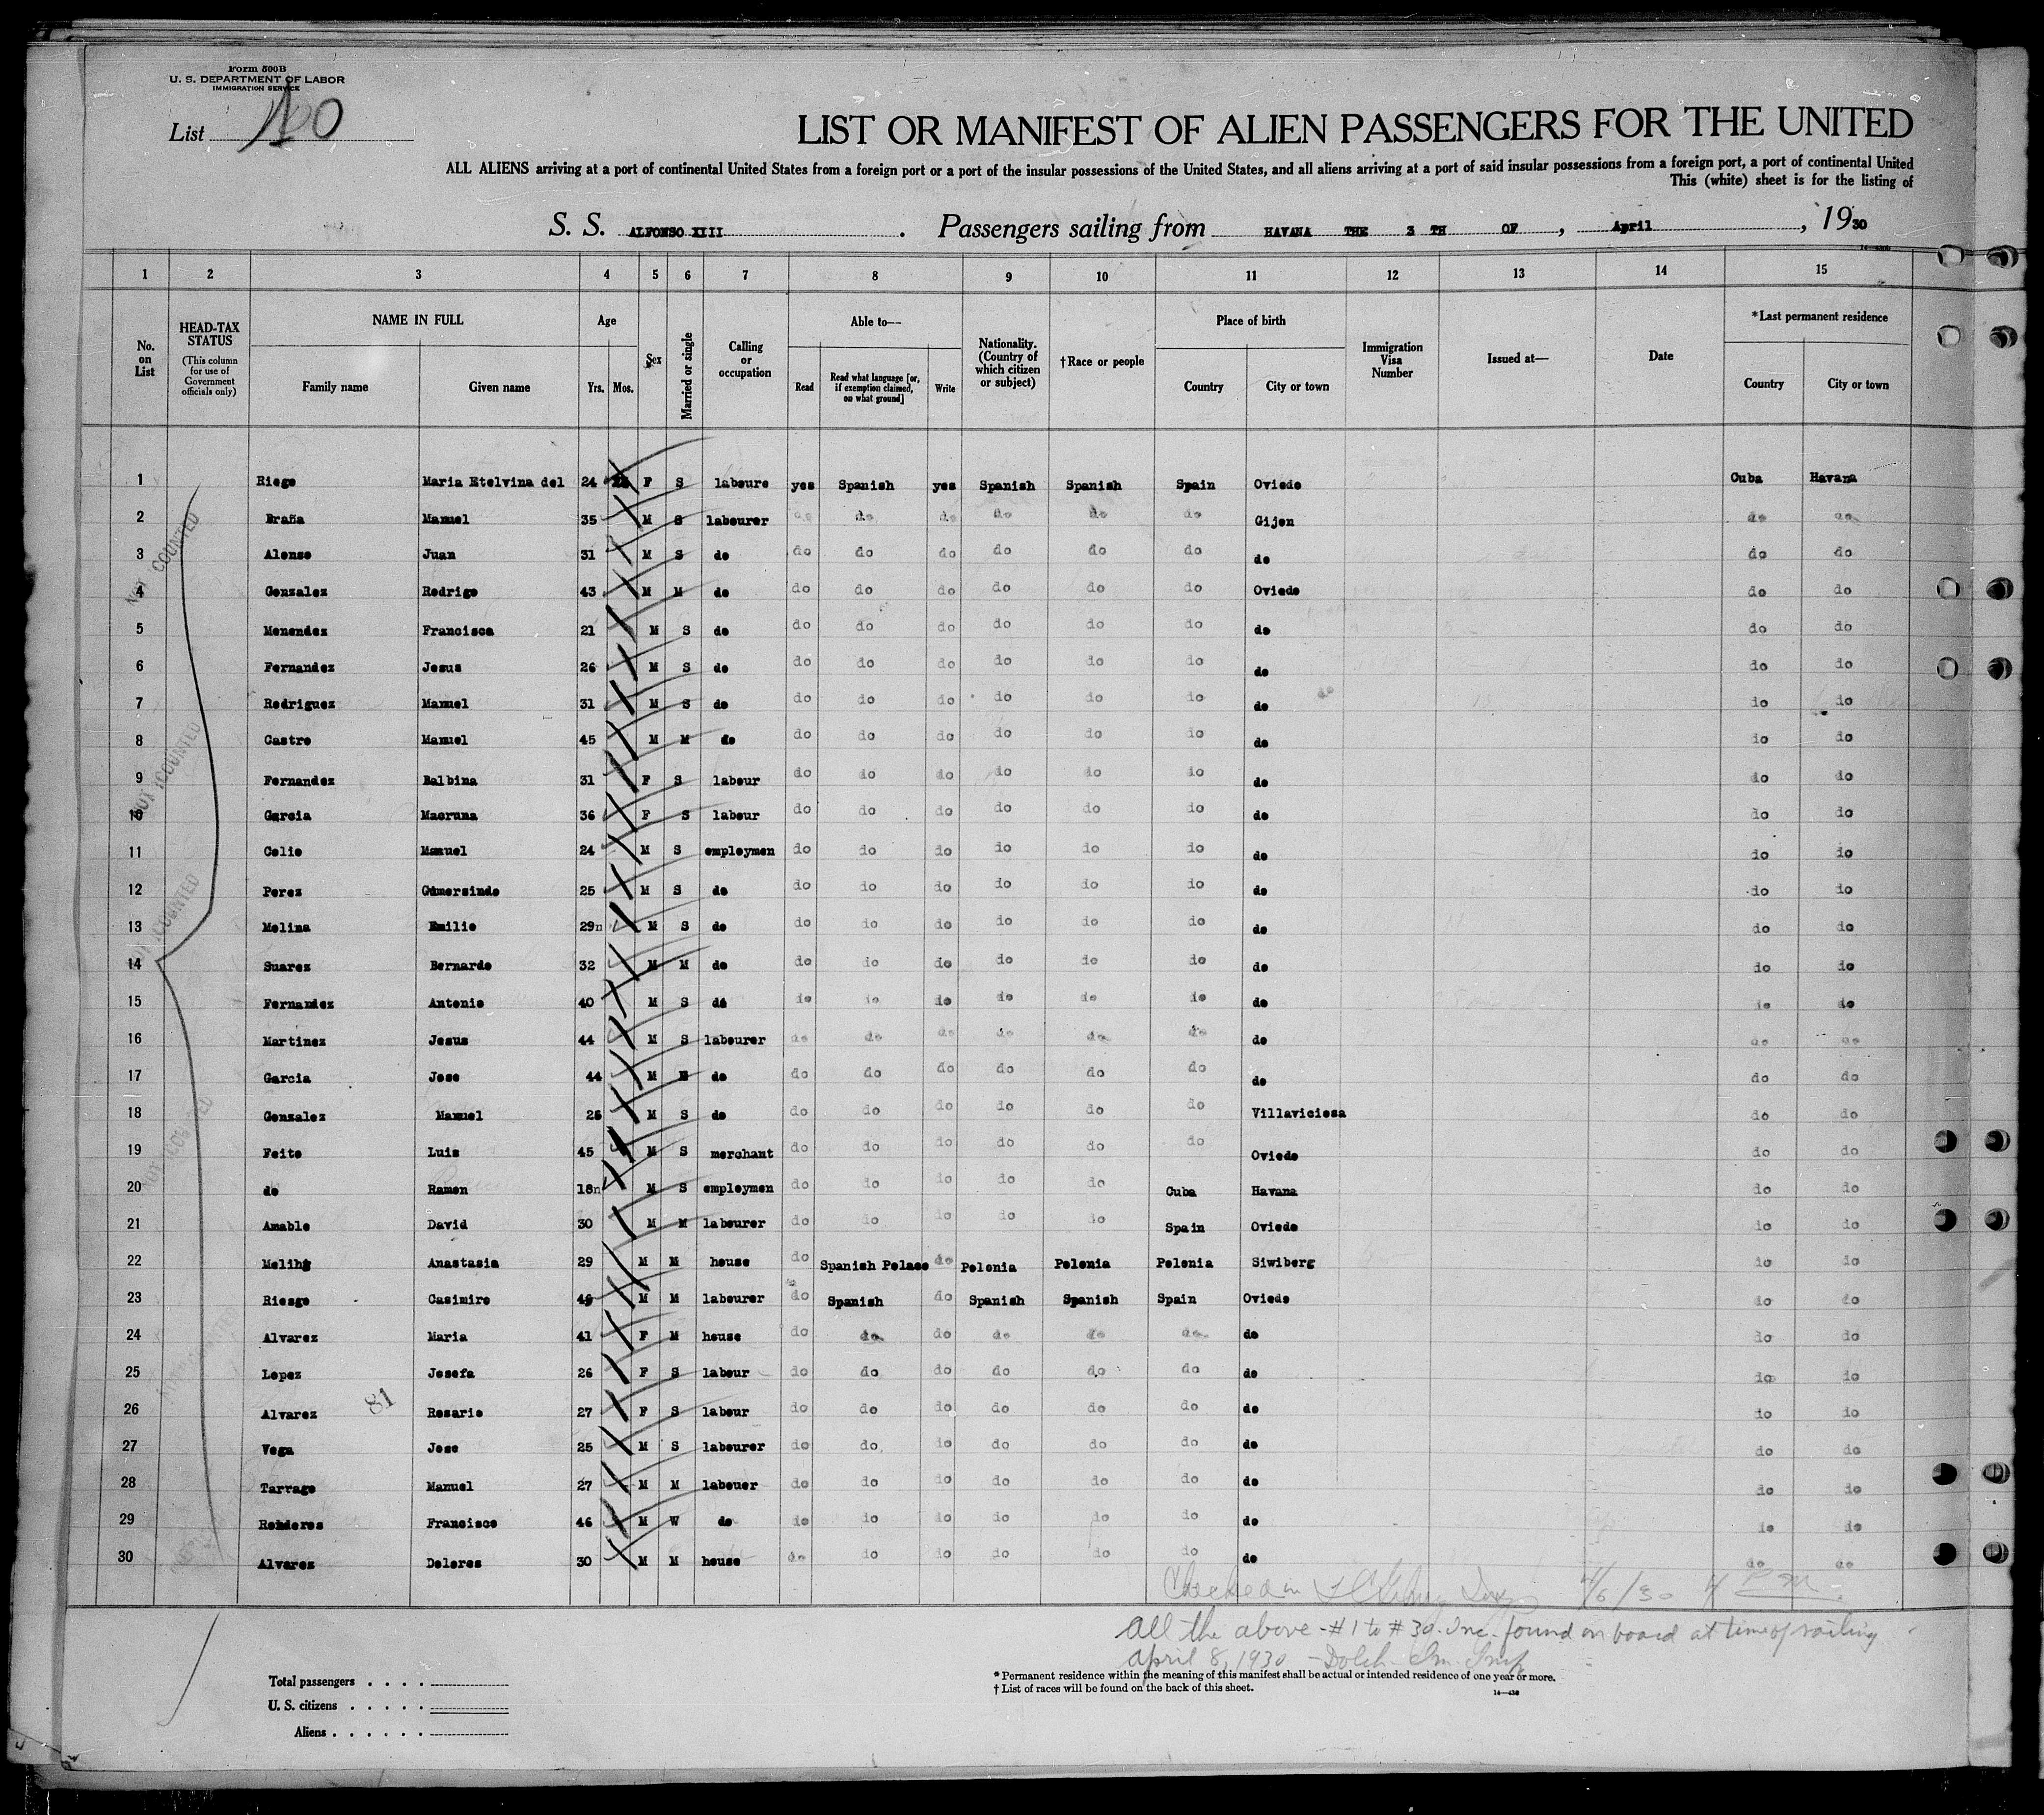 Form 500B
U. S. DEPARTMENT OF LABOR
IMMIGRATION SERVICE
List
LIST OR MANIFEST OF ALIEN PASSENGERS FOR THE UNITED
ALL ALIENS arriving at a port of continental United States from a foreign port or a port of the insular possessions of the United States, and all aliens arriving at a port of said insular possessions from a foreign port, a port of continental United
This (white) sheet is for the listing of
S. S. ALFONSO XIII. Passengers sailing from HAVANA THE 3 TH OF, April, 1930
1 2 3 4 5 6 7 8 9 10 11 12 13 14 15
No. on List HEAD-TAX STATUS (This column for use of Government officials only) NAME IN FULL Family name Given name Age Yrs. Mos. Sex Married or single Calling or occupation Able to— Read Read what language [or, if exemption claimed, on what ground] Write Nationality. (Country of which citizen or subject) †Race or people Place of birth Country City or town Immigration Visa Number Issued at— Date *Last permanent residence Country City or town
1 Riego Maria Etelvina del 24 F S laboure yes Spanish yes Spanish Spanish Spain Oviedo Cuba Havana
2 Braña Manuel 35 M S labourer do do do do do do Gijon do do
3 Alonso Juan 31 M S do do do do do do do do do do
4 Gonzalez Rodrigo 43 M M do do do do do do do Oviedo do do
5 Menendez Francisca 21 M S do do do do do do do do do do
6 Fernandez Jesus 26 M S do do do do do do do do do do
7 Rodriguez Manuel 31 M S do do do do do do do do do do
8 Castro Manuel 45 M M do do do do do do do do do do
9 Fernandez Balbina 31 F S labour do do do do do do do do do
10 Garcia Macruma 36 F S labour do do do do do do do do do
11 Celio Manuel 24 M S employmen do do do do do do do do do
12 Perez Gumersindo 25 M S do do do do do do do do do do
13 Molina Emilio 29n M S do do do do do do do do do do
14 Suarez Bernardo 32 M M do do do do do do do do do do
15 Fernandez Antonio 40 M S do do do do do do do do do do
16 Martinez Jesus 44 M S labourer do do do do do do do do do
17 Garcia Jose 44 M do do do do do do do do do do
18 Gonzalez Manuel 25 M S do do do do do do do Villaviciosa do do
19 Feito Luis 45 M S merchant do do do do do do Oviedo do do
20 do Ramon 18n M S employmen do do do do do Cuba Havana do do
21 Amable David 30 M M labourer do do do do do Spain Oviedo do do
22 Anastasia 29 M M house do Spanish Polaco do Polonia Polonia Polonia Siwiberg do do
23 Riesgo Casimiro M M labourer do Spanish do Spanish Spanish Spain Oviedo do do
24 Alvarez Maria 41 F M house do do do do do do do do do
25 Lopez Josefa 26 F S labour do do do do do do do do do
26 Alvarez Rosario 27 F S labour do do do do do do do do do
81
27 Vega Jose 25 M S labourer do do do do do do do do do
28 Tarrago Manuel 27 M M labouer do do do do do do do do do
29 Francisco 46 M W do do do do do do do do do do
30 Alvarez Dolores 30 M M house do do do do do do do do do
NOT COUNTED
NOT COUNTED
COUNTED
NOT COUNTED
Checked in 4/6/30 4 PM
All the above - #1 to #30. Inc. found on board at time of sailing
April 8, 1930 - Dolch. Im. Insp
* Permanent residence within the meaning of this manifest shall be actual or intended residence of one year or more.
† List of races will be found on the back of this sheet.
14—430
Total passengers . . . .
U. S. citizens . . . . .
Aliens . . . . . .